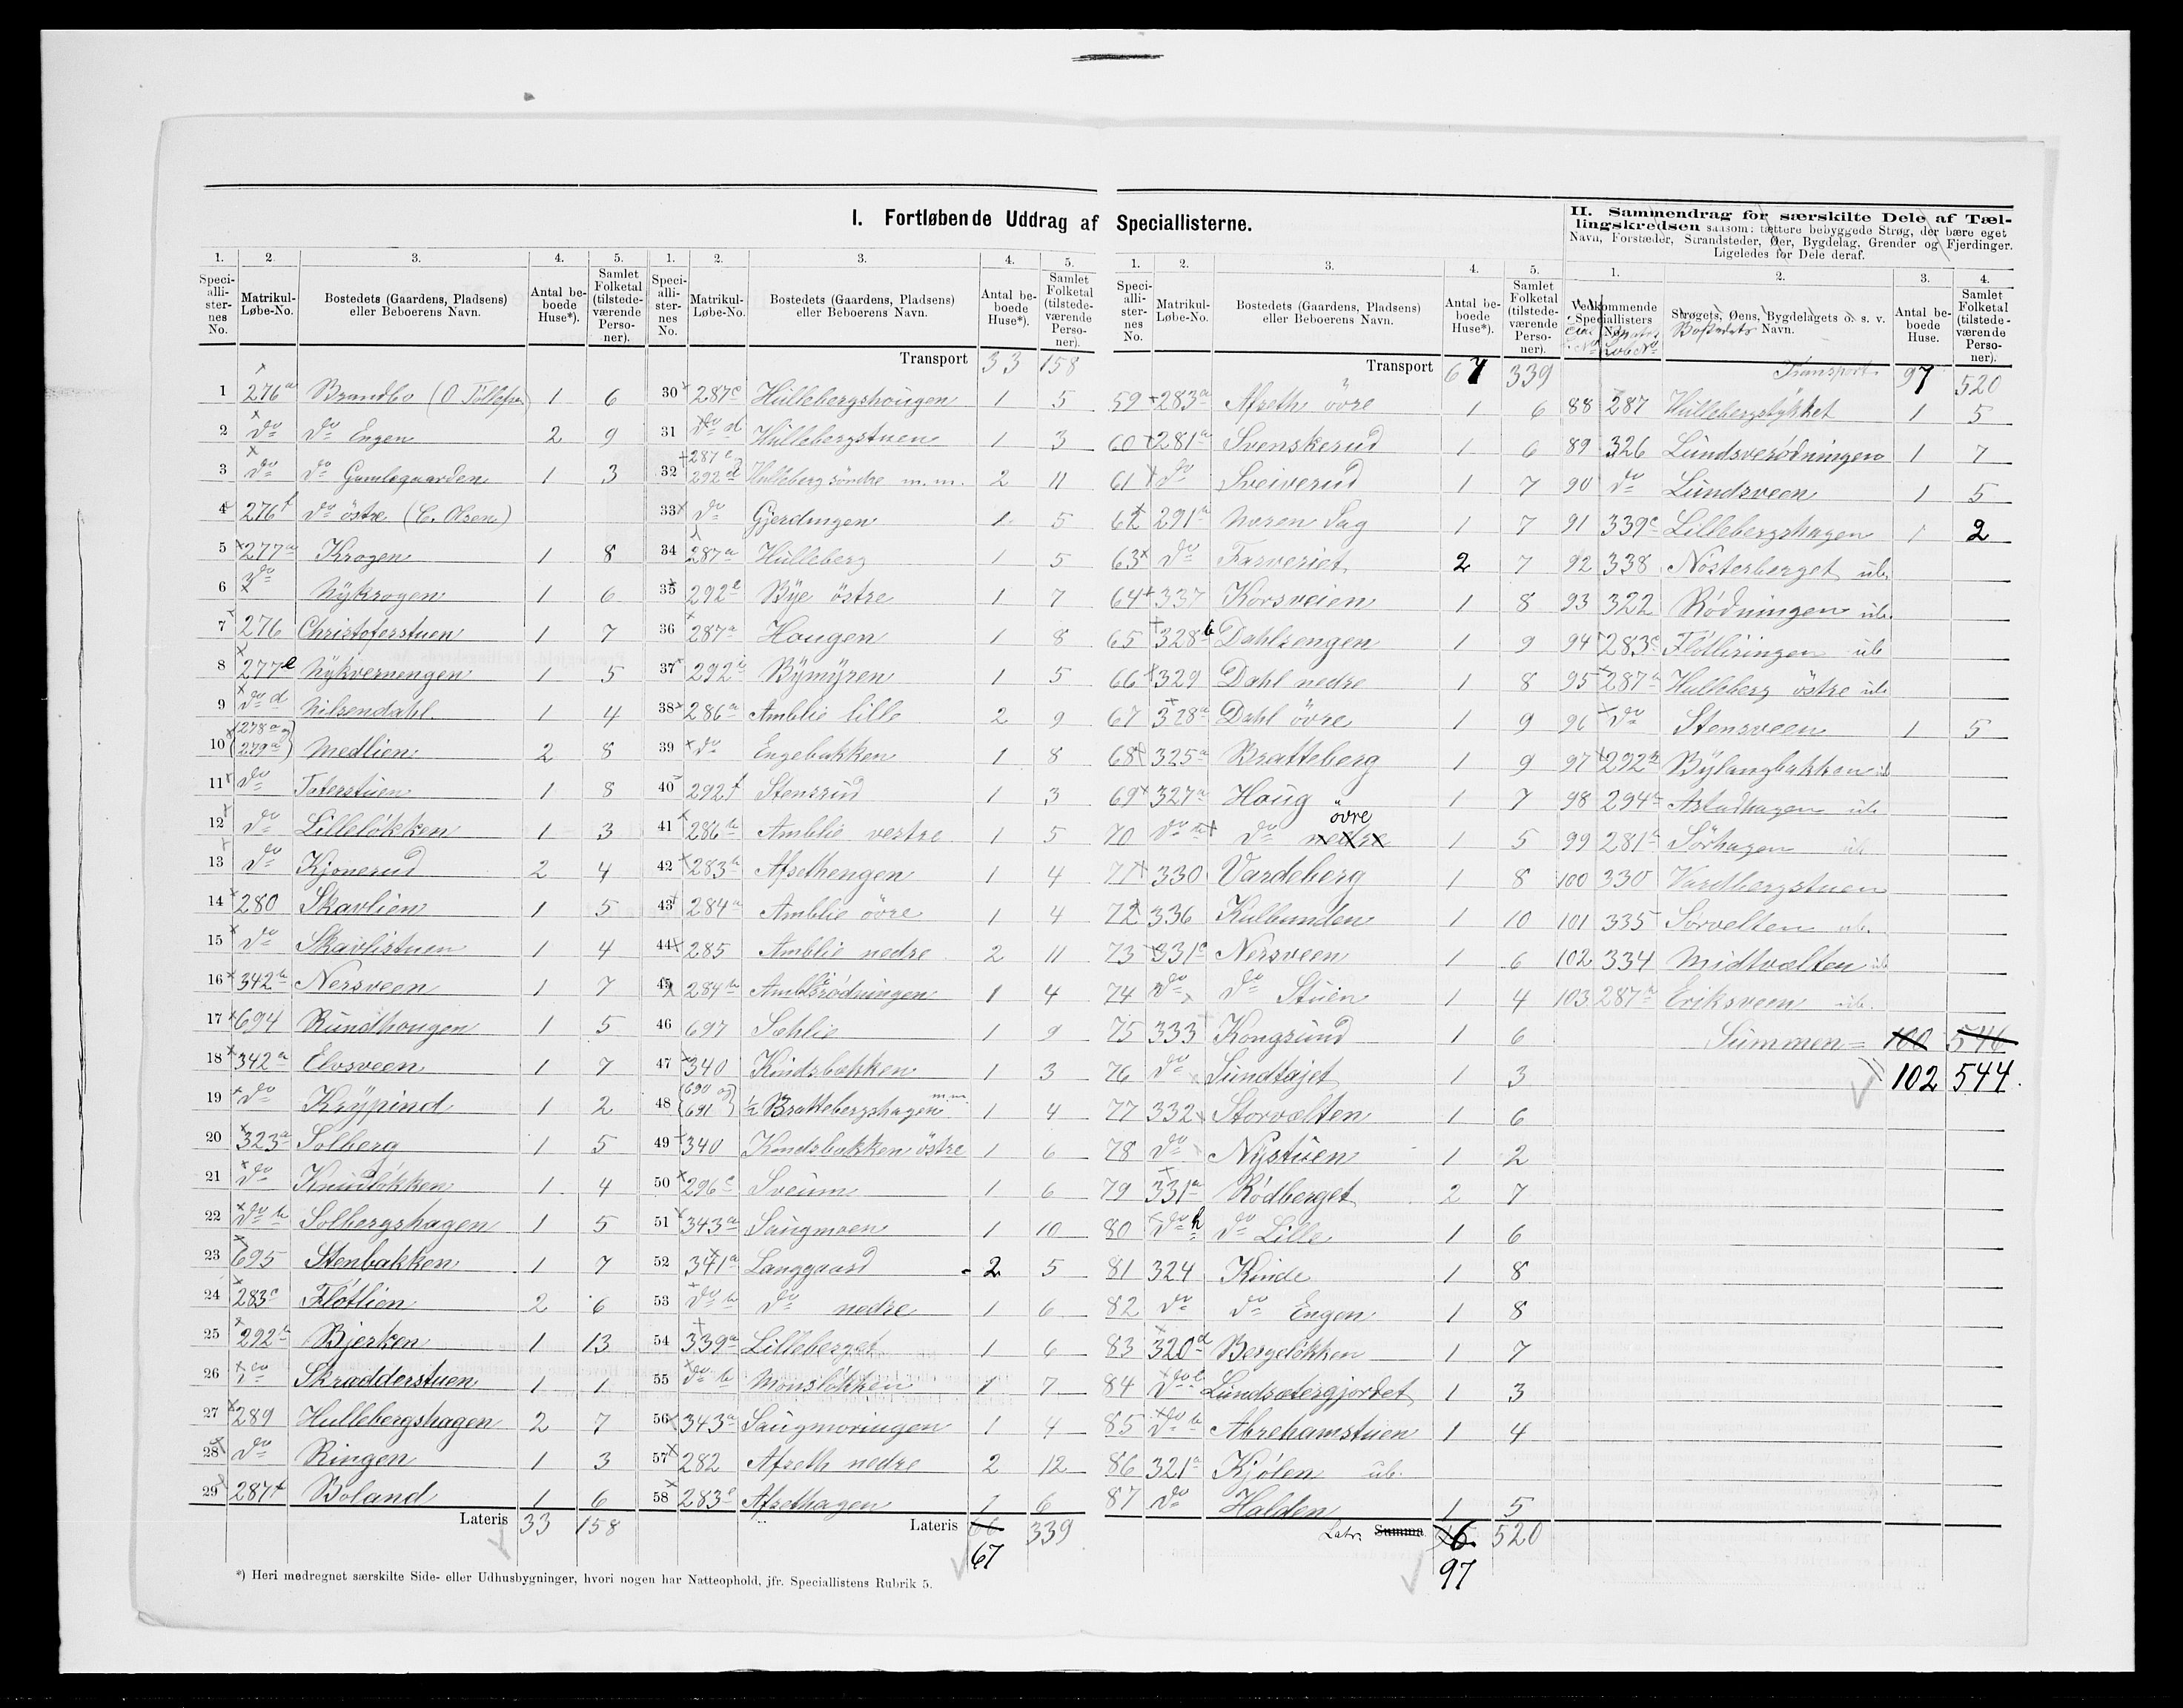 I. Fortløbende Uddrag af Speciallisterne.
1. 2. 3. 4. 5.
Speciallisternes No. Matrikul-Løbe-No. Bostedets (Gaardens, Pladsens) eller Beboerens Navn. Antal beboede Huse*). Samlet Folketal (tilstedeværende Personer).
1 276a Brandbo (O Tollefsen 1 6
2 do do Engen 2 9
3 do do Gamlegaarden 1 3
4 276f do østre (C. Olsen)
5 277a Krogen 1 8
6 do Nykrogen 1 6
7 276 Christoferstuen 1 7
8 277e Nykvernengen 1 5
9 do d Nilsendahl 1 4
10 (278a og 279a) Medlien 2 8
11 do Toterstuen 1 8
12 do Lilleløkken 1 3
13 do Kjonerud 2 4
14 280 Skavlien 1 5
15 do Skavlistuen 1 4
16 342b Nersveen 1 7
17 694 Rundhougen 1 5
18 342a Elvsveen 1 7
19 do Krypind 1 2
20 323a Solberg 1 5
21 do Knudløkken 1 4
22 do b Solbergshagen 1 5
23 695 Stenbakken 1 7
24 283c Fløtlien 2 6
25 292b Bjerken 1 13
26 do Skrædderstuen 1 1
27 289 Hullebergshagen 2 7
28 do Ringen 1 3
29 287f Boland 1 6
Lateris 33 158
1. 2. 3. 4. 5.
Speciallisternes No. Matrikul-Løbe-No. Bostedets (Gaardens, Pladsens) eller Beboerens Navn. Antal beboede Huse*). Samlet Folketal (tilstedeværende Personer).
Transport 33 158
30 287c Hullebergshougen 1 5
31 do d Hullebergstuen 1 3
32 287e 292d Hulleberg söndre m.m. 2 11
33 do Gjerdingen 1 5
34 287a Hulleberg 1 5
35 292e Bye östre 1 7
36 287a Haugen 1 8
37 292i Bymyren 1 5
38 286a Amblie lille 2 9
39 do Engebakken 1 8
40 292f Stensrud 1 3
41 286b Amblie vestre 1 5
42 283b Afsethengen 1 4
43 284a Amblie övre 1 4
44 285 Amblie nedre 2 11
45 284b Amblirødningen 1 4
46 697 Sæhlie 1 9
47 340 Kindsbakken 1 3
48 (690 og 691) ½ Brattebergshagen m.m. 1 4
49 340 Kindsbakken östre 1 6
50 296c Sveum 1 6
51 343a Saugmoen 1 10
52 341a Langgaard 2 5
53 do b do nedre 1 6
54 339a Lilleberget 1 6
55 do b Monsløkken 1 7
56 343a Saugmoringen 1 4
57 282 Afseth nedre 2 12
58 283e Afsethagen 1 6
Lateris 66 339
67
1. 2. 3. 4. 5.
Speciallisternes No. Matrikul-Løbe-No. Bostedets (Gaardens, Pladsens) eller Beboerens Navn. Antal beboede Huse*). Samlet Folketal (tilstedeværende Personer).
Transport 67 339
59 283a Afseth övre 1 6
60 281a Svenskerud 1 6
61 do Sveiverud 1 7
62 291a Moren Sag 1 7
63 do Farveriet 2 7
64 337 Korsveien 1 8
65 328b Dahlsengen 1 9
66 329 Dahl nedre 1 8
67 328a Dahl övre 1 9
68 325a Bratteberg 1 9
69 327a Haug 1 7
70 do a do nedre övre 1 5
71 330 Vardeberg 1 8
72 336 Kullunden 1 10
73 331c Nersveen 1 6
74 do do Stuen 1 4
75 333 Kongsund 1 6
76 do Sundtajet 1 3
77 332 Storvælten 1 6
78 do Nystuen 1 2
79 331a Rødberget 2 7
80 do h do Lille 1 6
81 324 Kinde 1 8
82 do do Engen 1 8
83 320d Bergeløkken 1 7
84 do e Lundsætergjordet 1 3
85 do b Abrehamstuen 1 4
86 321a Kjølen ub.
87 do Halden 1 5
Latr. Summa 520
97
II. Sammendrag for særskilte Dele af Tællingskredsen saasom: tættere bebyggede Strøg, der bære eget Navn, Forstæder, Strandsteder, Øer, Bygdelag, Grender og Fjerdinger. Ligeledes for Dele deraf.
1. 2. 3. 4.
Vedkommende Speciallisters No. Strøgets, Øens, Bygdelagets o. s. v. Navn. Bostedets Antal beboede Huse. Samlet Folketal (tilstedeværende Personer).
Transport 97 520
88 287 Hullebergstykket 1 5
89 326 Lundsverødningen 1 7
90 do Lundsveen 1 5
91 339c Lillebergshagen 1 2
92 338 Nösterberget ub.
93 322 Rødningen ub.
94 283c Fløtliringen ub
95 287a Hulleberg östre ub.
96 do Stensveen 1 5
97 292b Bylangbakken ub
98 294a Astadhagen ub.
99 281a Sörhagen ub.
100 330 Vardbergstuen
101 335 Sorvelten ub.
102 334 Midtvælten ub
103 287a Eriksveen ub.
Summen = 100 546
102 544.
*) Heri medregnet særskilte Side- eller Udhusbygninger, hvori nogen har Natteophold, jfr. Speciallistens Rubrik 5.